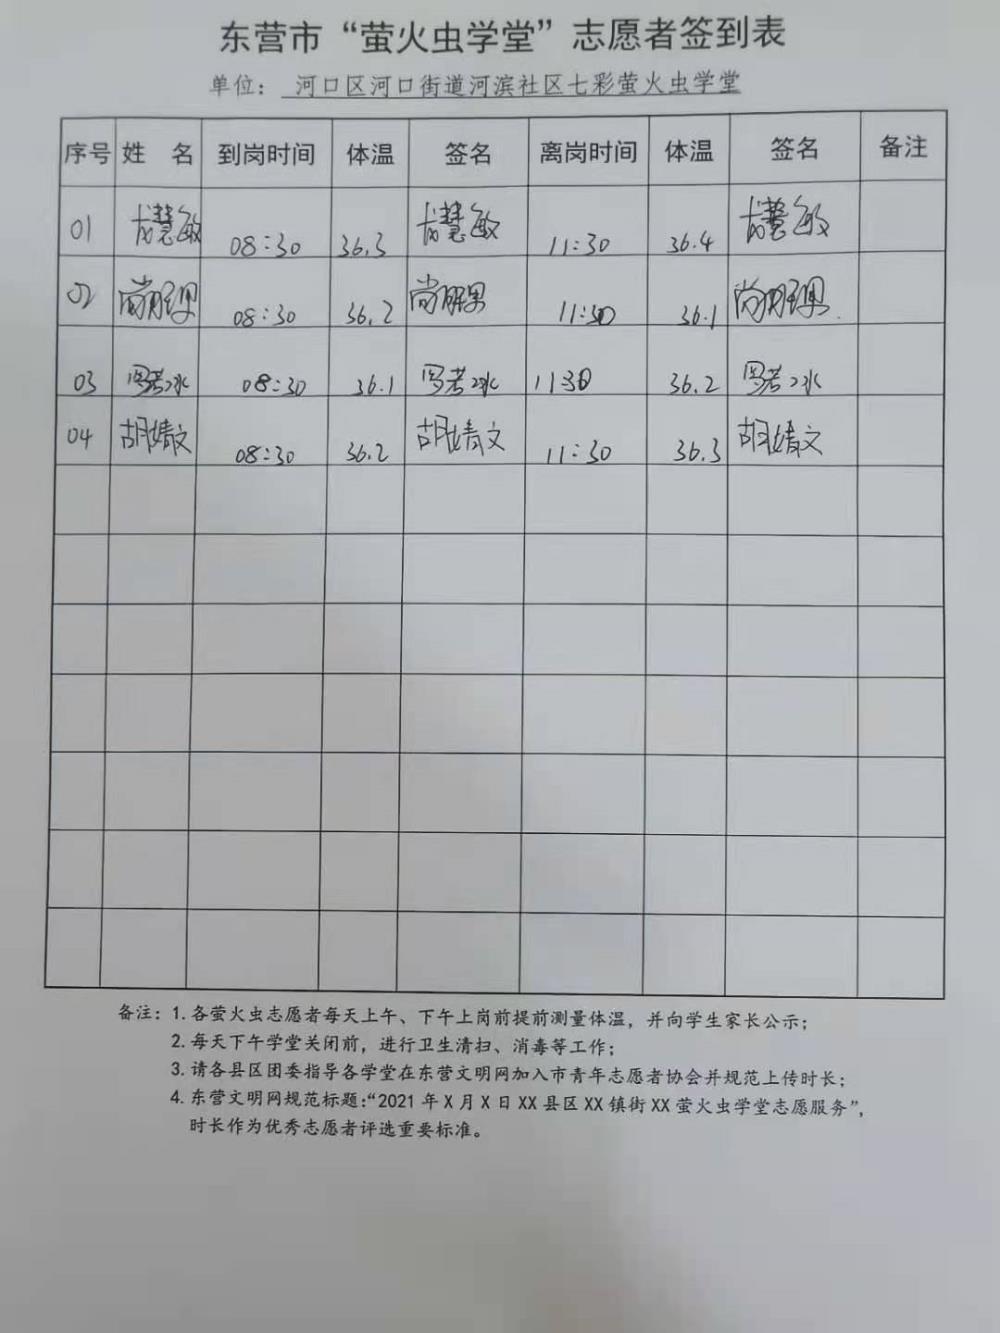 东营市“萤火虫学堂”志愿者签到表
单位： 河口区河口街道河滨社区七彩萤火虫学堂
序号 姓 名 到岗时间 体温 签名 离岗时间 体温 签名 备注
01 慧敏 08:30 36.3 慧敏 11:30 36.4 慧敏
02 尚 08:30 36.2 尚 11:30 36.1 尚
03 若冰 08:30 36.1 若冰 11:30 36.2 若冰
04 胡婧文 08:30 36.2 胡婧文 11:30 36.3 胡婧文
备注：1. 各萤火虫志愿者每天上午、下午上岗前提前测量体温，并向学生家长公示；
2. 每天下午学堂关闭前，进行卫生清扫、消毒等工作；
3. 请各县区团委指导各学堂在东营文明网加入市青年志愿者协会并规范上传时长；
4. 东营文明网规范标题：“2021 年 X 月 X 日 XX 县区 XX 镇街 XX 萤火虫学堂志愿服务”，
时长作为优秀志愿者评选重要标准。